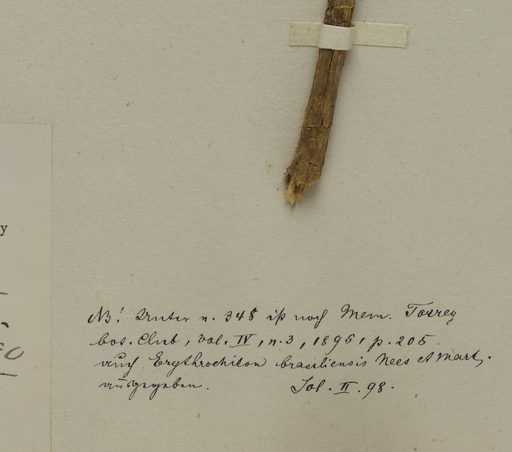 NB! Unter n. 348 iſt nach Mem. Torrey
bot. Club, vol. IV, n. 3, 1895, p. 205.
auch Erythrochiton brasiliensis Nees et Mart.
ausgegeben. II. 98.
y